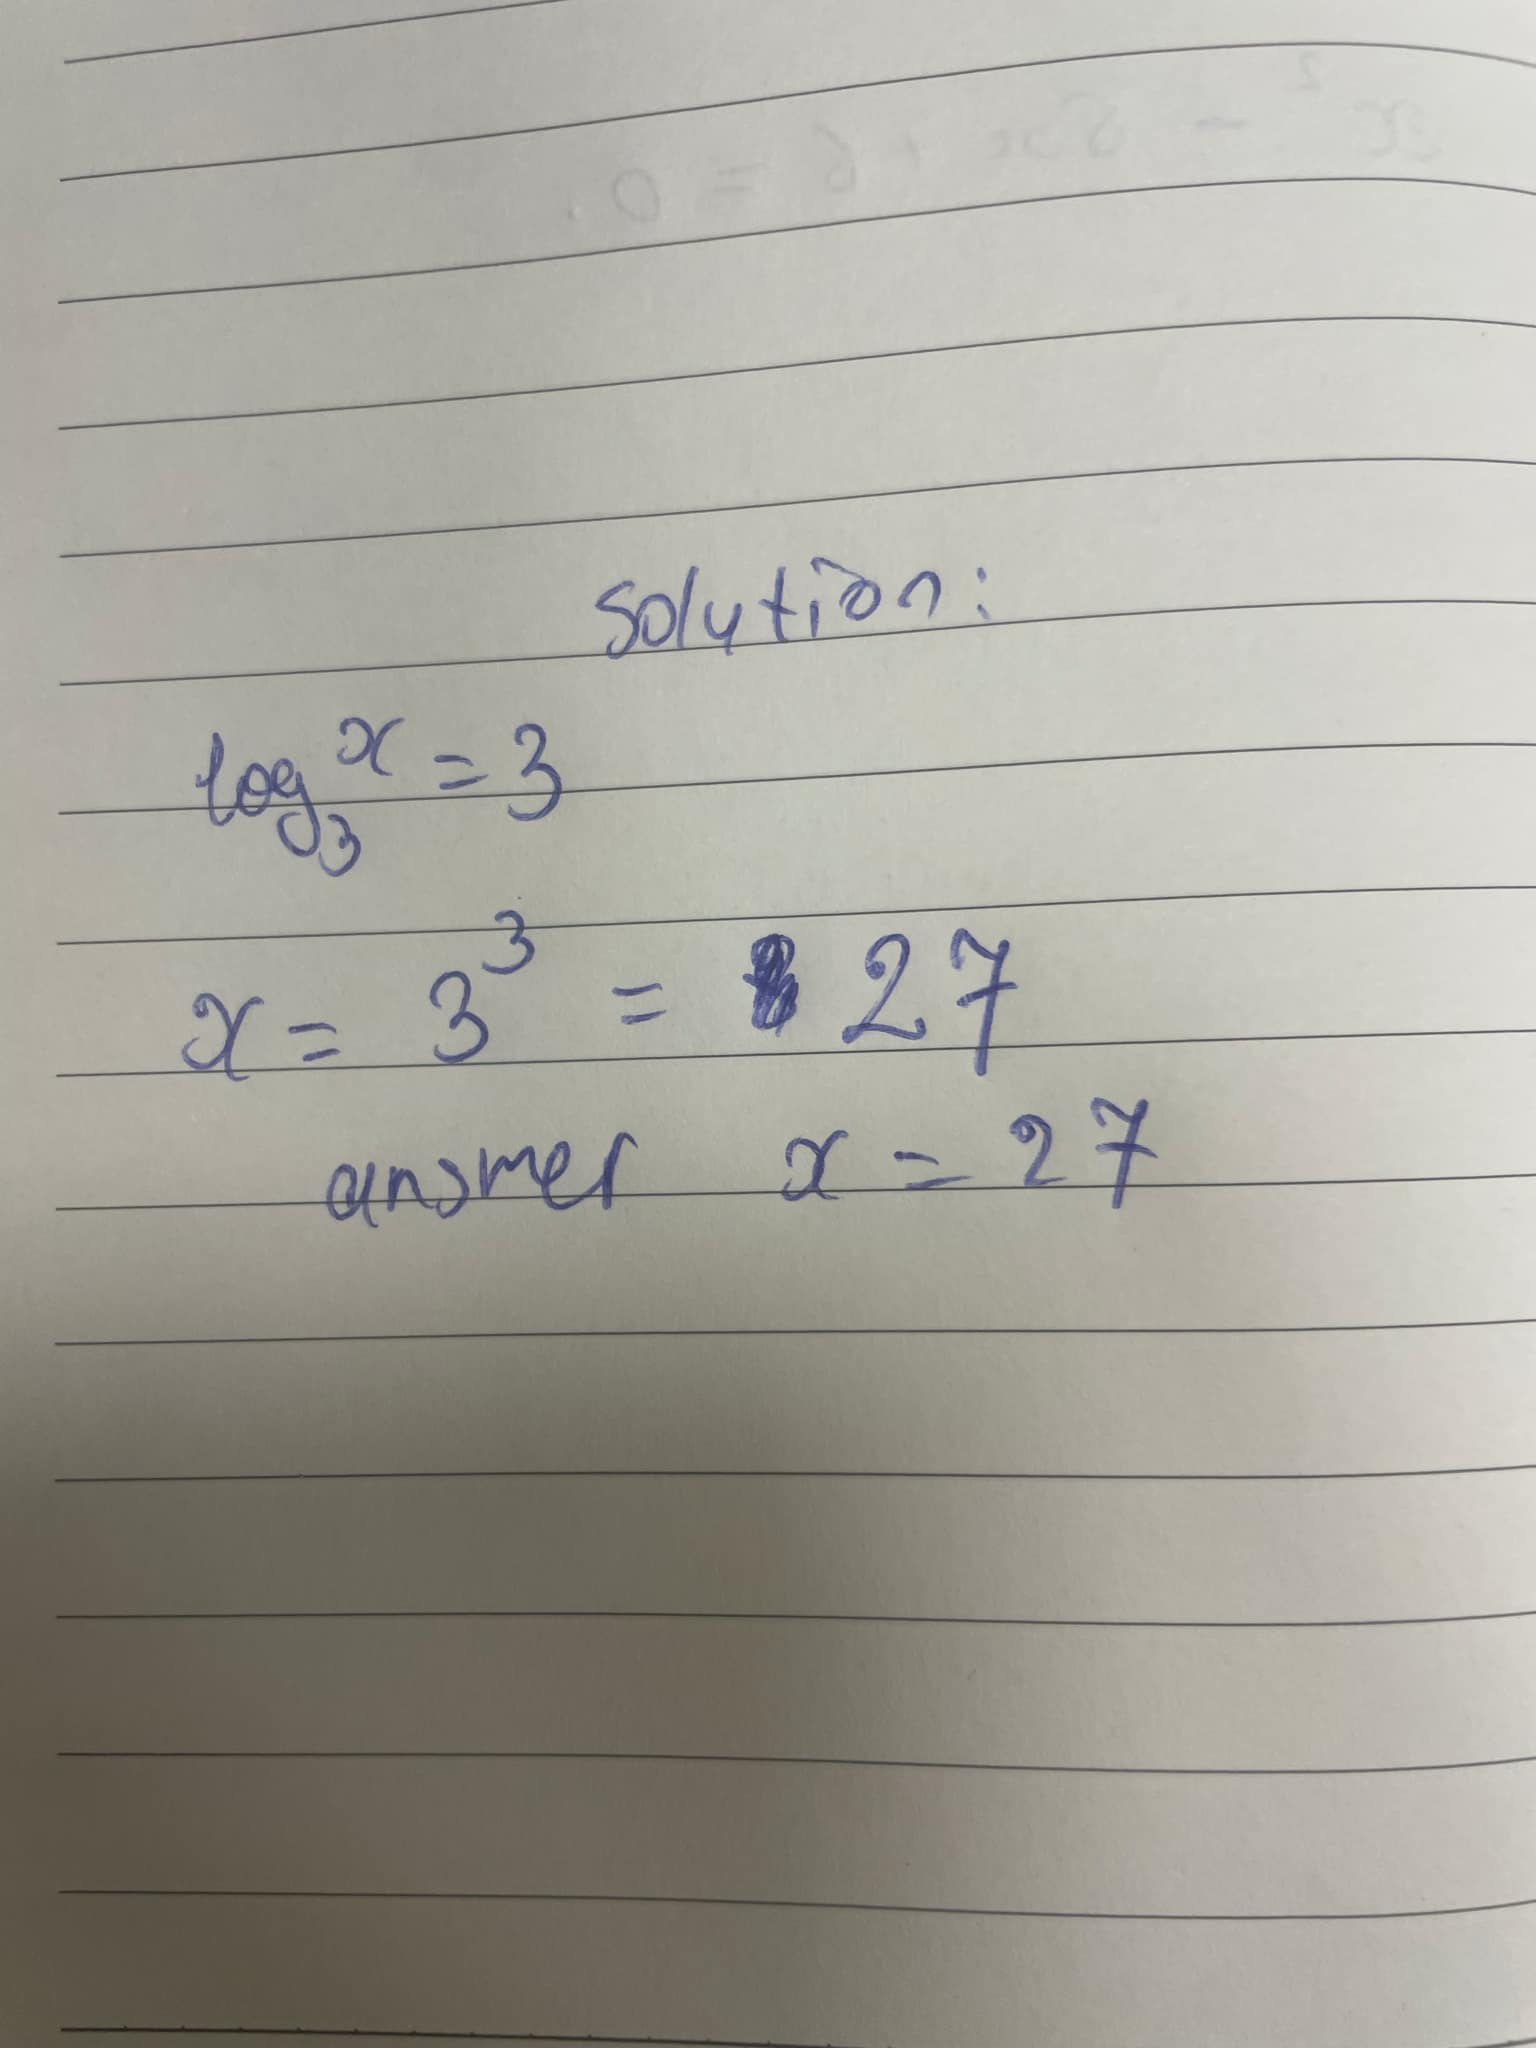 x² - 5x + 6 = 0.
solution:
log₃x = 3
x = 3³ = 27
answer x = 27